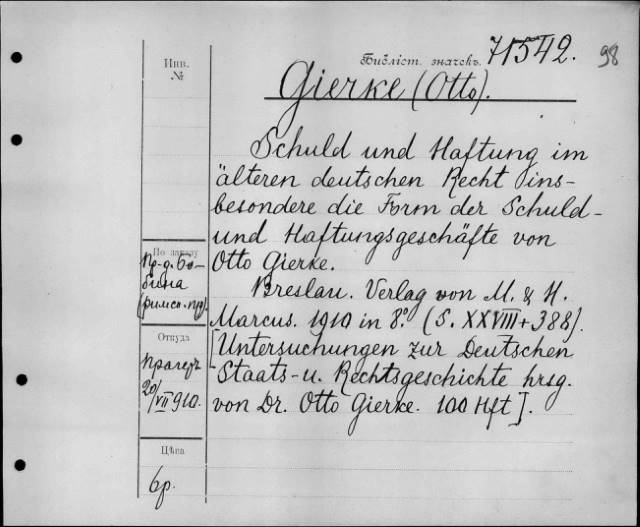 Инв. №
Библіот. значекъ. 71542.
98
Gierke (Otto).
Schuld und Haftung im
älteren deutschen Recht ins-
besondere die Form der Schuld-
und Haftungsgeschäfte von
Otto Gierke.
Breslau. Verlag von M. & H.
Marcus. 1910 in 8°. (S. XXVIII + 388).
[Untersuchungen zur Deutschen
Staats- u. Rechtsgeschichte hrsg.
von Dr. Otto Gierke. 100 Hft].
По заказу
Откуда
Прагеръ
20/VII 910.
Цѣна
6р.